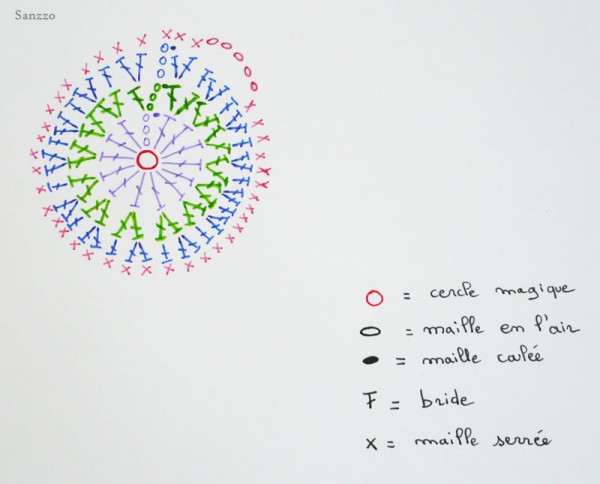 Sanzzo
= cercle magique
= maille en l'air
= maille calée
= bride
x = maille serrée